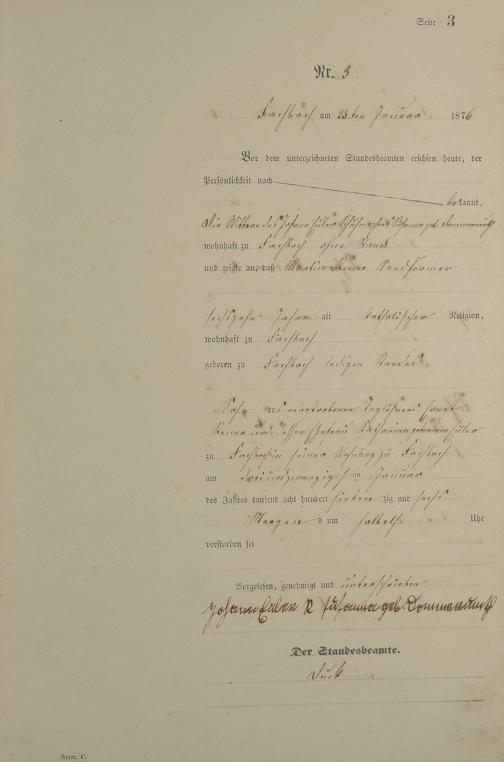 Seite 3
Nr. 3
Fachbach am 23ten Januar 1876
Vor dem unterzeichneten Standesbeamten erschien heute, der
Persönlichkeit nach
bekannt,
die Wittwe des Johann Euler Susanna geb.
wohnhaft zu Fachbach ohne Stand
und zeigte an, daß Sandformer
sechszehn Jahre alt katholischer Religion,
wohnhaft zu Fachbach
geboren zu Fachbach ledigen Standes
Sohn des verstorbenen Taglöhners
und dessen Ehefrau Katharina geborenen Euler
zu Fachbach in seiner Wohnung zu Fachbach
am dreiundzwanzigsten Januar
des Jahres tausend acht hundert sieben zig und sechs
Morgens um halb elf Uhr
verstorben sei
Vorgelesen, genehmigt und unterschrieben
Johann Euler Susanna geb
Der Standesbeamte.
Form. C.